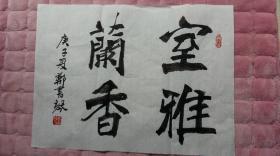 室雅
蘭香
庚子夏鄭書